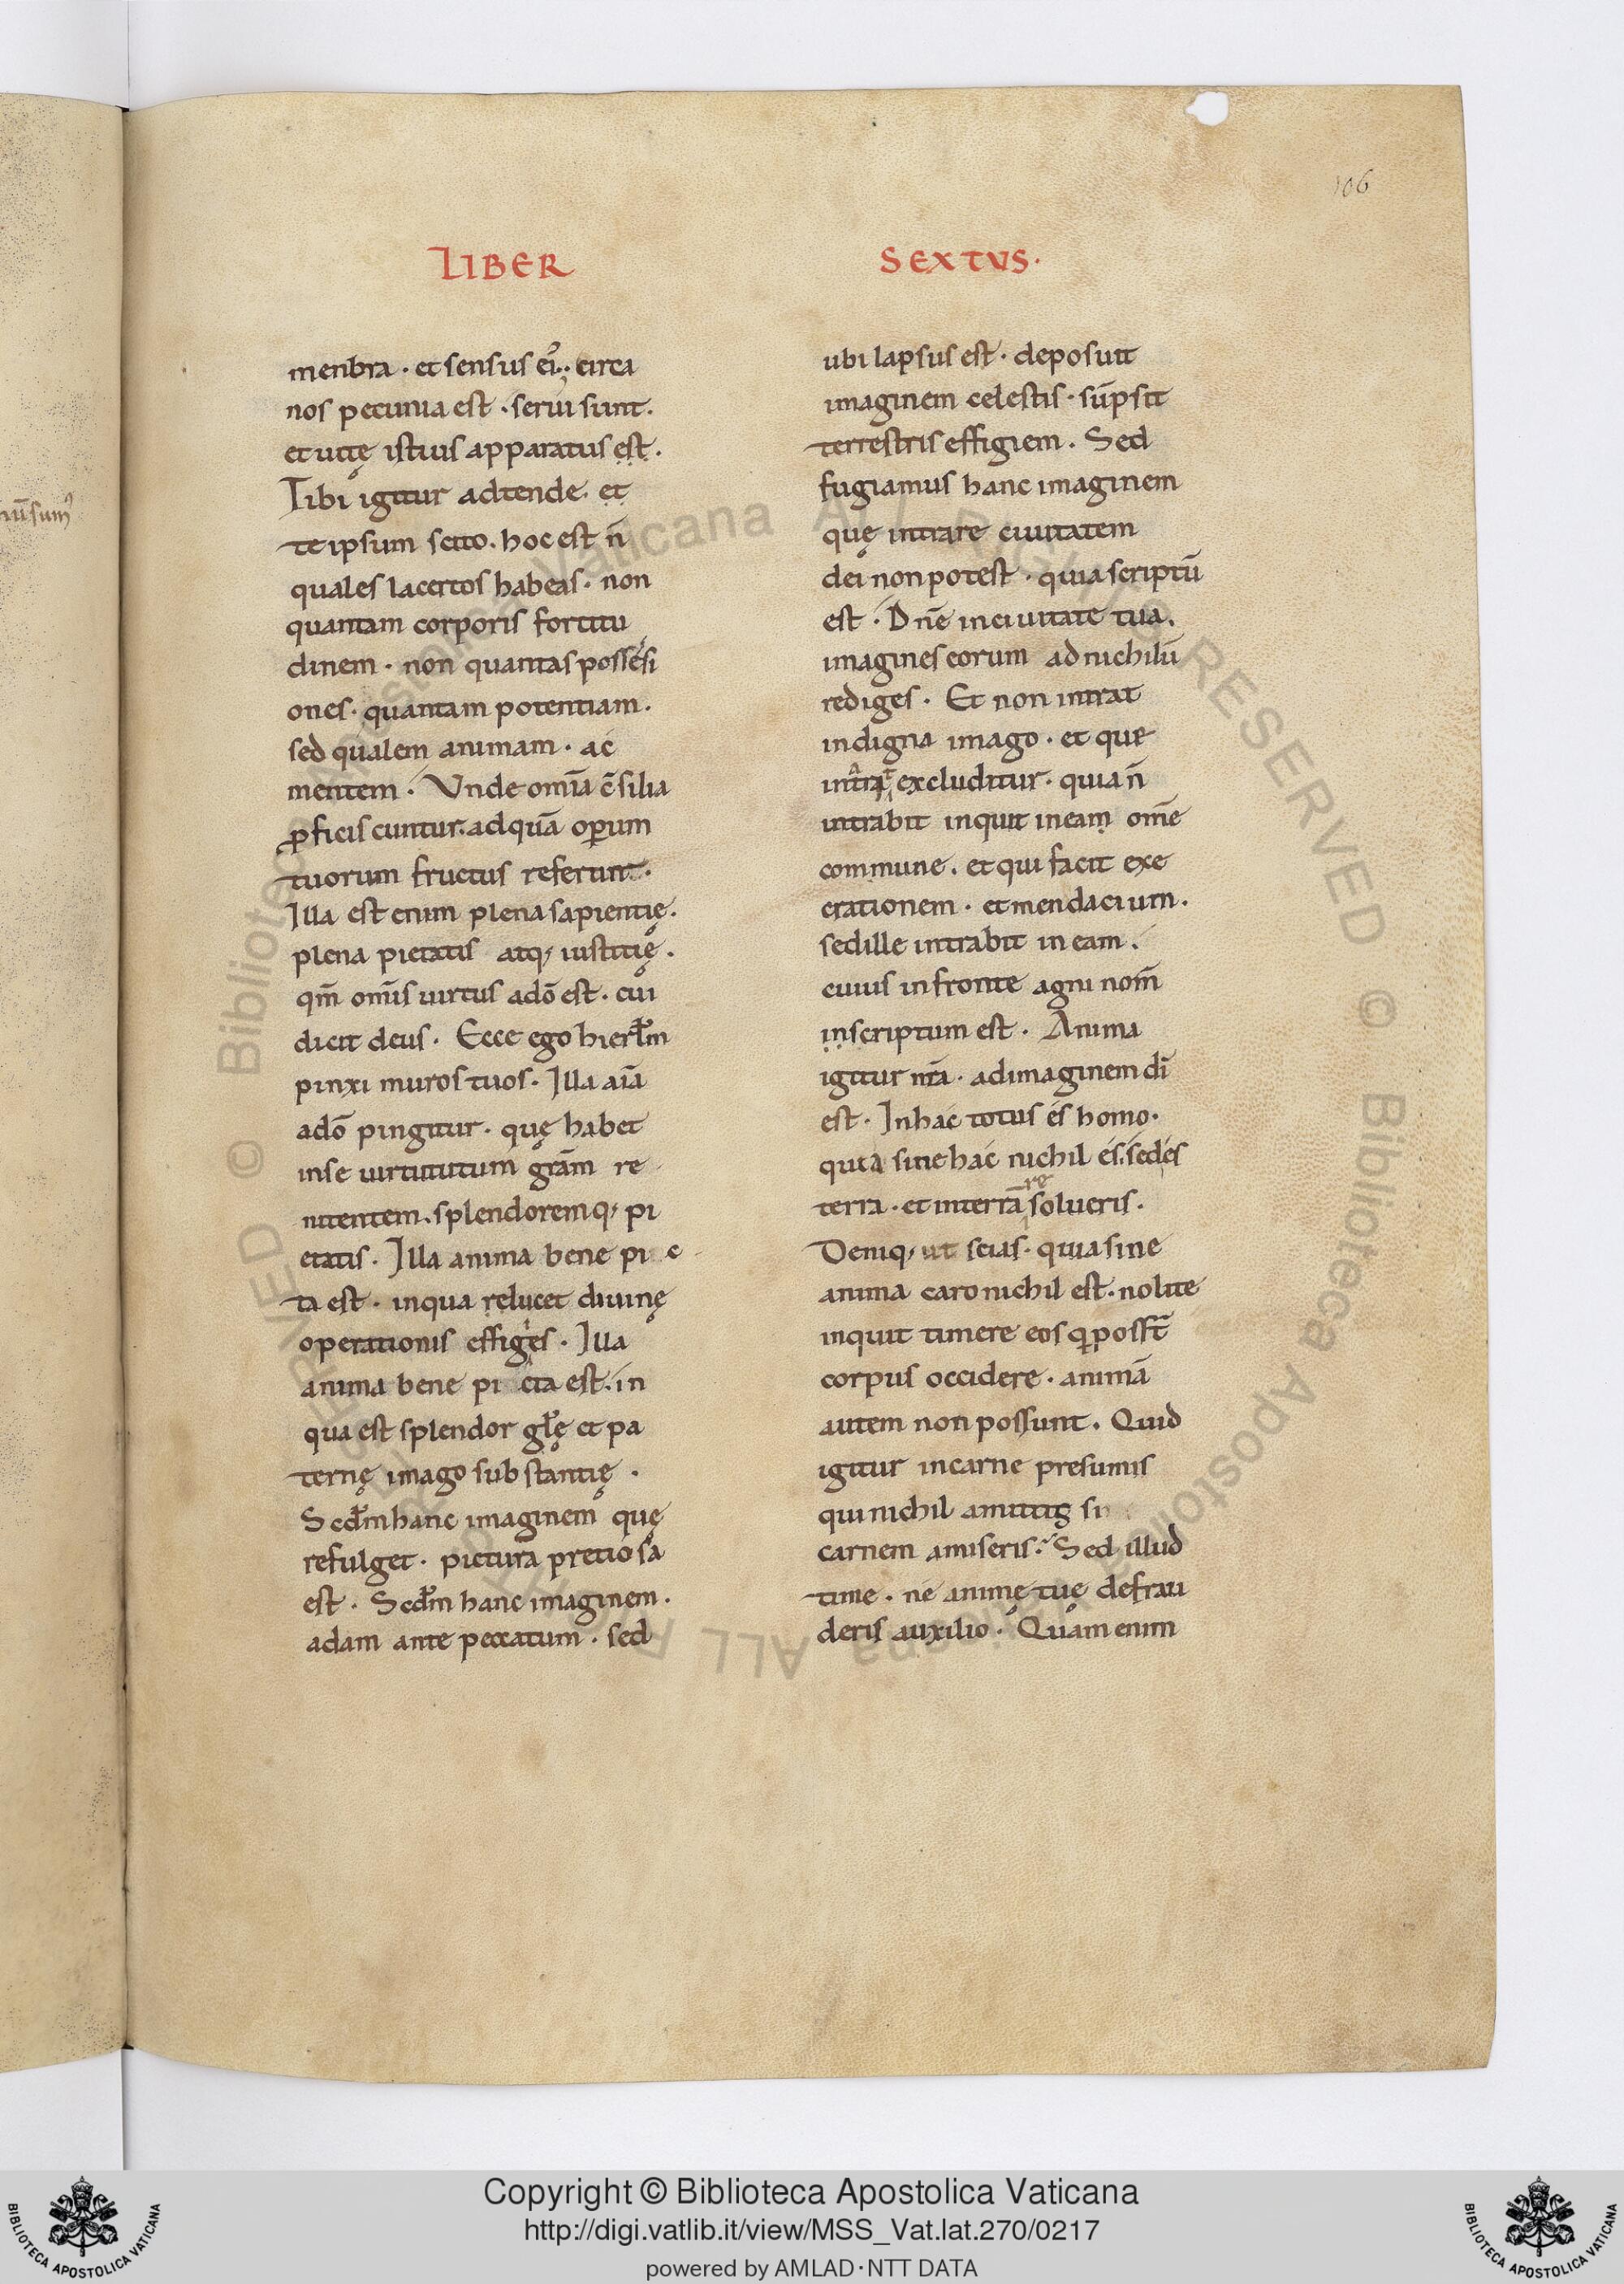 106
LIBER
SEXTVS.
menbra · et sensus ei᷒ · circa
nos pecunia est · serui sunt.
et uitę istius apparatus est.
Tibi igitur adtende. et
te ipsum scito. hoc est n̄
quales lacertos habeas · non
quantam corporis fortitu
dinem · non quantas possesi
ones · quantam potentiam.
sed qualem animam · ac
mentem · Vnde omīa c̄silia
ꝓficiscuntur. ad quā oꝑum
tuorum fructus referunt.
Illa est enim plena sapientię.
plena pietatis atq; iustitię.
qm̄ omīs uirtus adō est · cui
dicit deus. Ecce ego hierłm
pinxi muros tuos. Illa aīa
adō pingitur · quę habet
in se uirtututum grām re
nitentem. splendoremq; pi
etatis. Illa anima bene pi c
ta est · in qua relucet diuinę
operationis effiges. Illa
anima bene pi cta est. in
qua est splendor głę et pa
ternę imago substantię.
Scd̄m hanc imaginem quę
refulget. pictura pretiosa
est. Scd̄m hanc imaginem.
adam ante peccatum · sed
ubi lapsus est · deposuit
imaginem celestis · sūpsit
terrestris effigiem. Sed
fugiamus hanc imaginem
quę intrare ciuitatem
dei non potest · quia scriptū
est. Dn̄e in ciuitate tua.
imagines eorum ad nichilū
rediges. Et non intrat
indigna imago · et que
excluditur · quia n̄
intrabit inquit in eam om̄e
commune. et qui facit exe
crationem · et mendacium.
sed ille intrabit in eam.
cuius in fronte agni nom̄
inscriptum est. Anima
igitur nrā · ad imaginem dī
est. In hac totus es homo.
quia sine hac nichil es. sed es
terra · et in terrā resolueris.
Deniq; ut scias · quia sine
anima caro nichil est. nolite
inquit timere eos q̇ possn̄t
corpus occidere · animā
autem non possunt. Quid
igitur in carne presumis
qui nichil amittis si
carnem amiseris. Sed illud
time · ne animę tuę defrau
deris auxilio. Quam enim
Copyright © Biblioteca Apostolica Vaticana
http://digi.vatlib.it/view/MSS_Vat.lat.270/0217
powered by AMLAD·NTT DATA